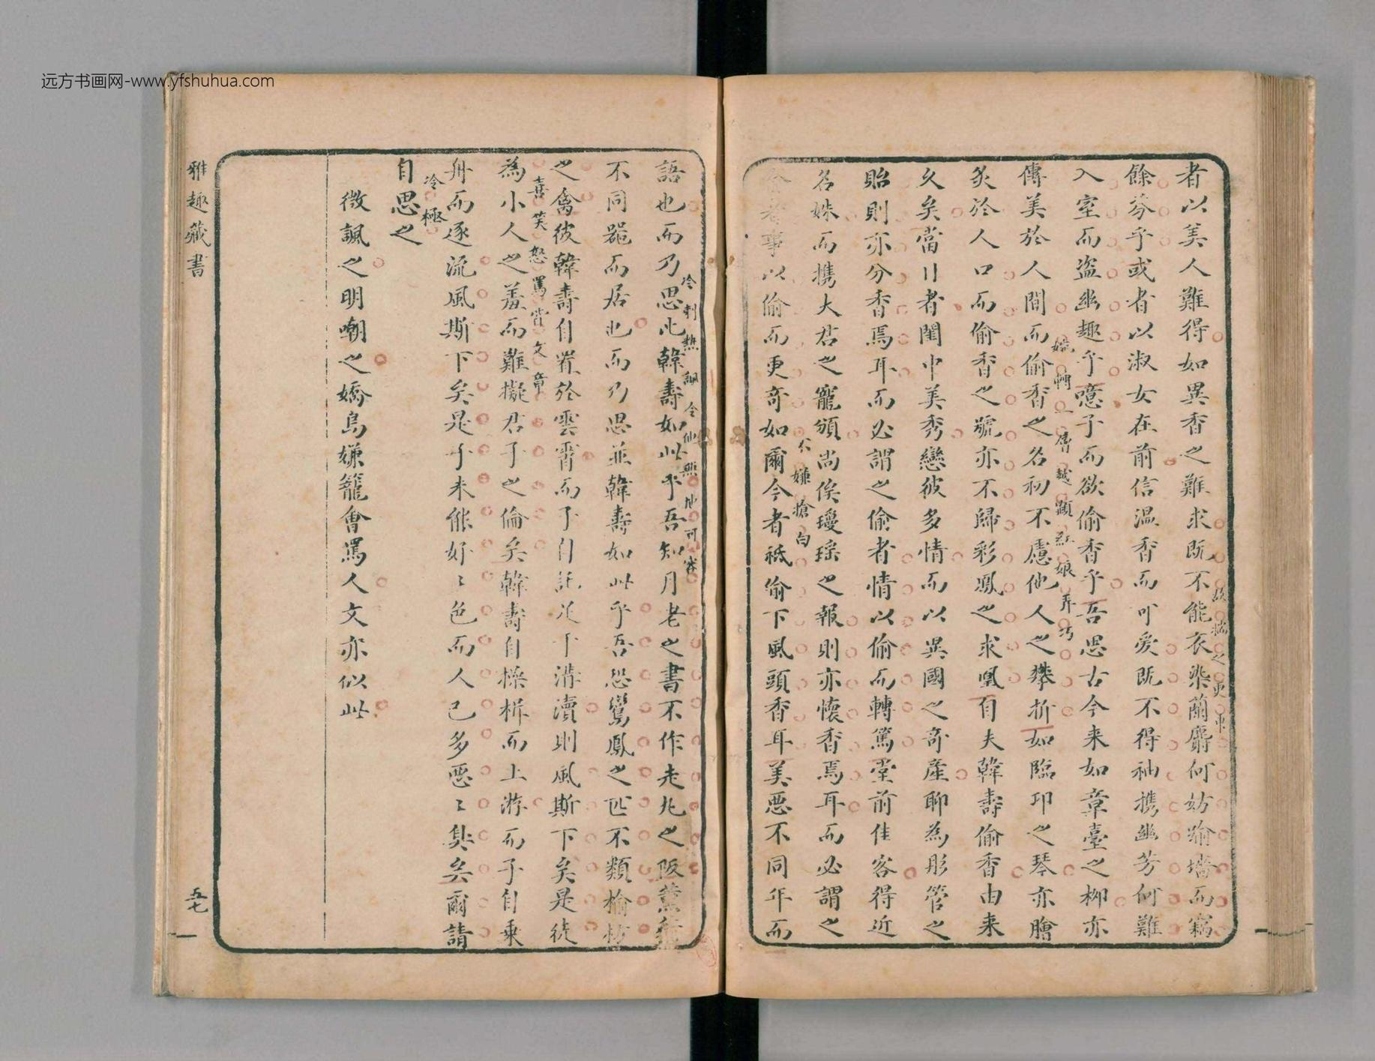 远方书画网-www.yfshuhua.com
者以美人難得如異香之難求既不能衣染蘭麝何妨踰墻而竊
餘芬乎或者以淑女在前信温香而可爱既不得袖攜幽芳何難
入室而盗幽趣乎噫子而欲偷香乎吾思古今来如章臺之柳亦
嬌轉一聲越顯紅娘弄巧
傳美於人間而偷香之名初不慮他人之攀折如臨邛之琴亦膾
炙於人口而偷香之號亦不歸彩鳳之求凰自夫韓壽偷香由来
久矣當日者閨中美秀戀彼多情而以異國之奇産聊為彤管之
貽則亦分香焉耳而必謂之偷者情以偷而轉篤堂前佳客得近
名姝而攜大君之寵頒尚俟瓊瑶之報則亦懷香焉耳而必謂之
不嫌搶白
事以偷而更奇如爾今者祗偷下風頭香耳美惡不同年而
冷刺熱
語也而乃思比韓壽如此乎吾知月老之書不作走丸之阪薰
不同器而居也而乃思並韓壽如此乎吾恐鸞鳳之匹不類榆枋
之禽彼韓壽自置於雲霄而子自託足于溝瀆則風斯下矣是徒
喜笑怒罵皆文章
為小人之羞而難擬君子之倫矣韓壽自操楫而上游而子自乘
舟而逐流風斯下矣是子未能好〻色而人已多惡〻臭矣爾請
冷極
自思之
微諷之明嘲之嬌鳥嫌籠會罵人文亦似此
雅趣藏書
五七